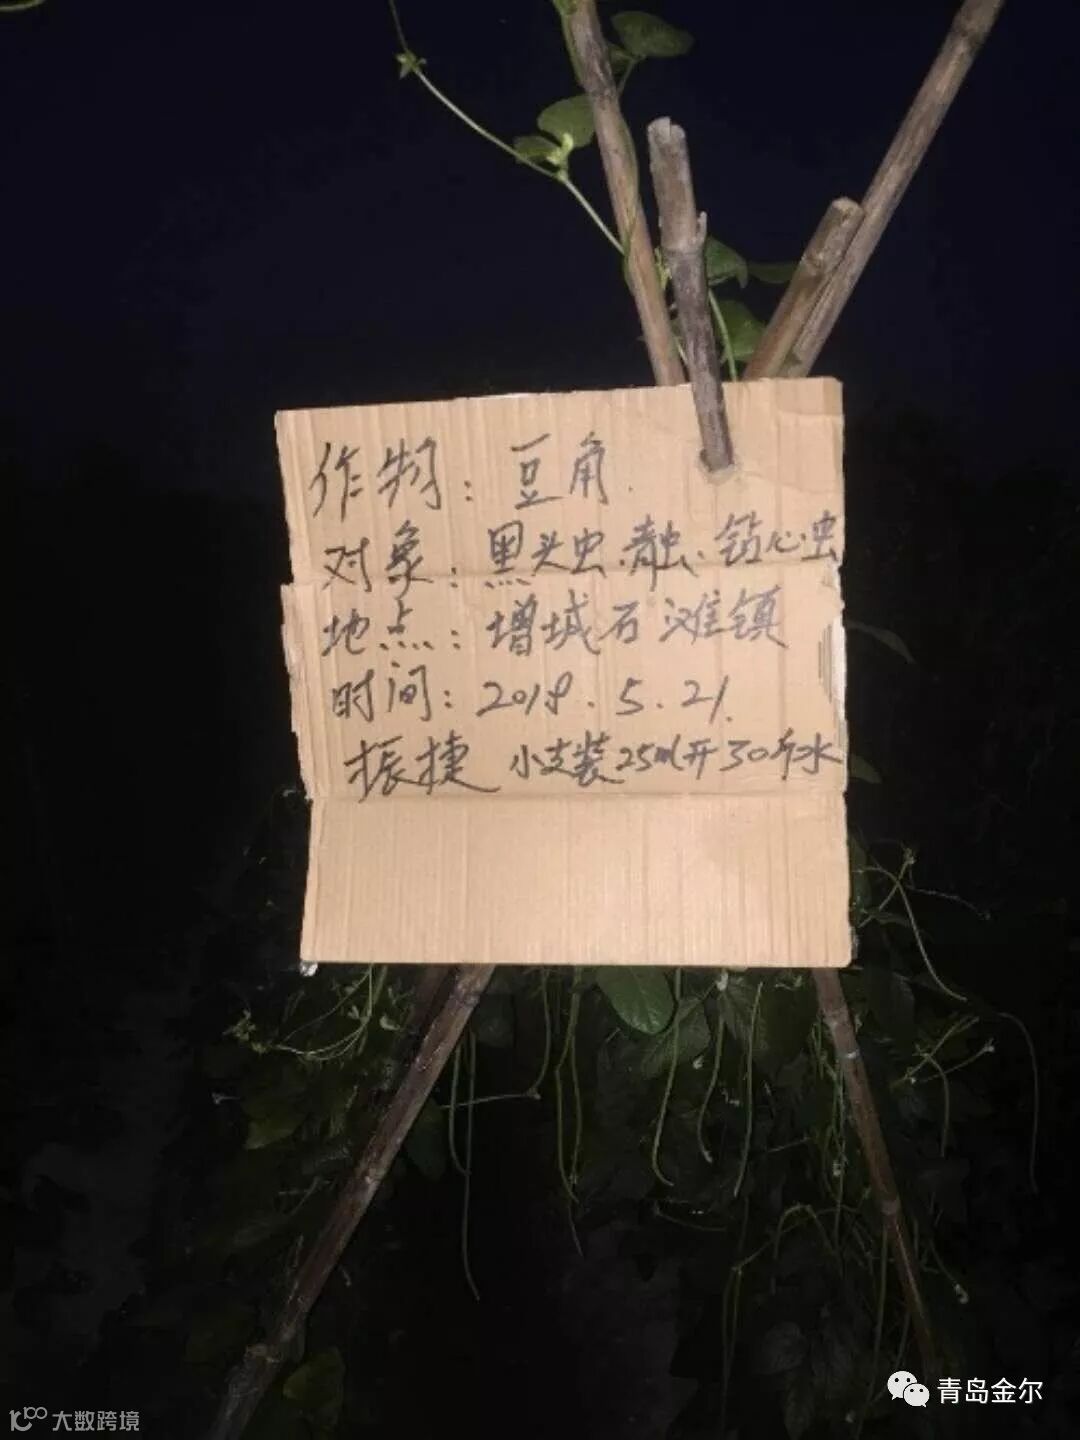 作物：豆角.
对象：黑头虫.青虫.钻心虫
地点：增城石滩镇
时间：2018.5.21.
振捷 小支装25ml开30斤水
青岛金尔
10100 大数跨境